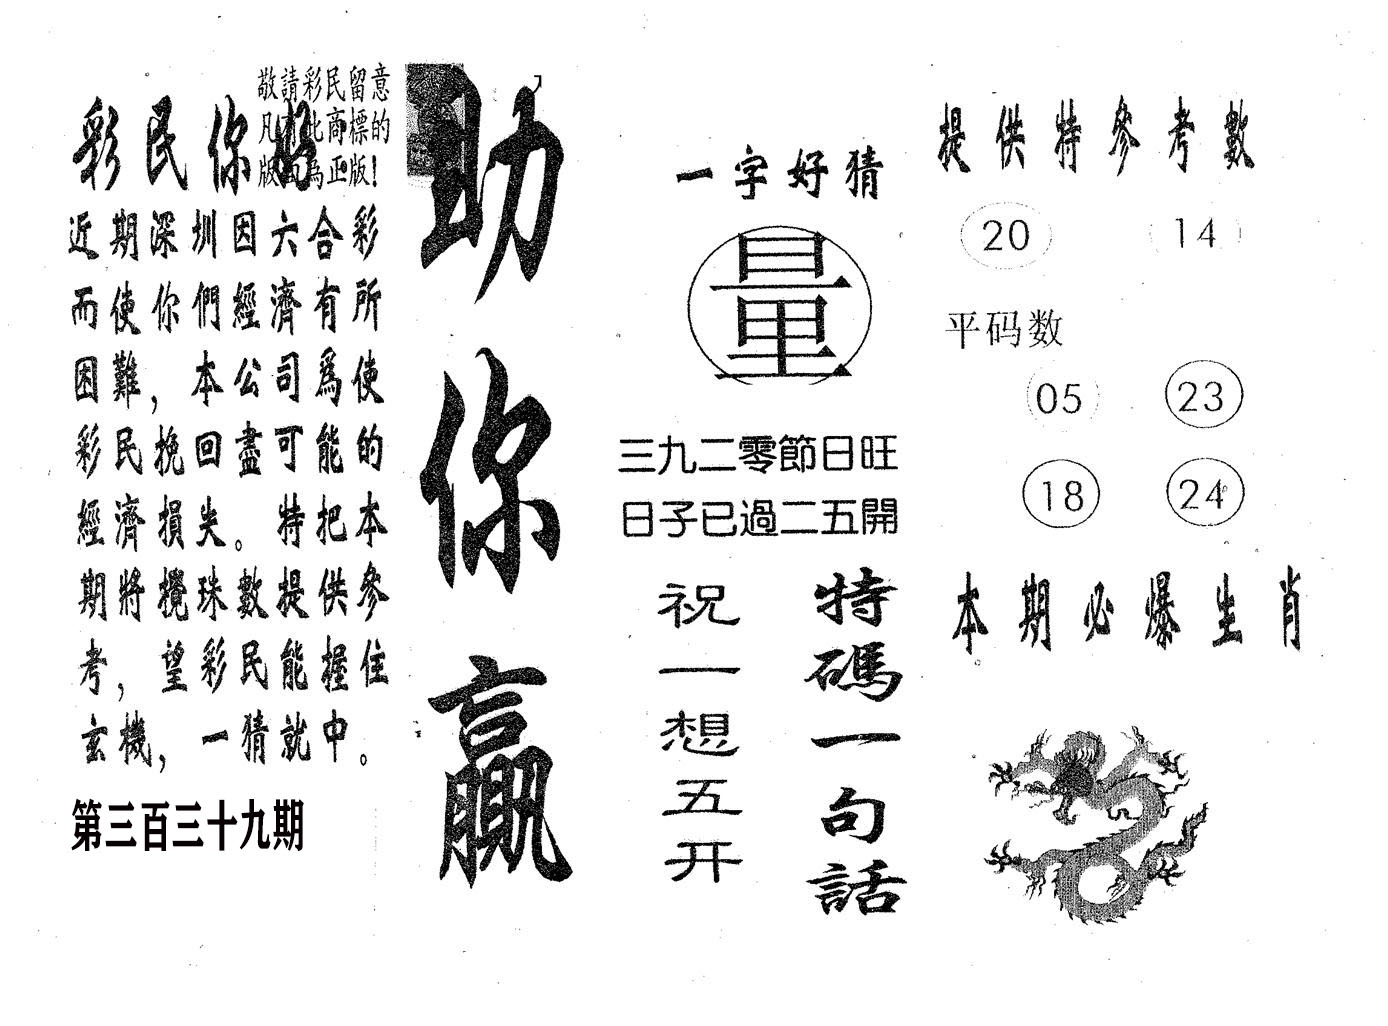 敬請彩民留意
凡 此商標的
版 為正版!
彩民你好
近期深圳因六合彩
而使你們經濟有所
困難，本公司爲使
彩民挽回盡可能的
經濟損失。特把本
期將攪珠數提供參
考，望彩民能握住
玄機，一猜就中。
第三百三十九期
助你贏
一字好猜
量
三九二零節日旺
日子已過二五開
特碼一句話
祝一想五开
提供特參考數
20 14
平码数
05 23
18 24
本期必爆生肖